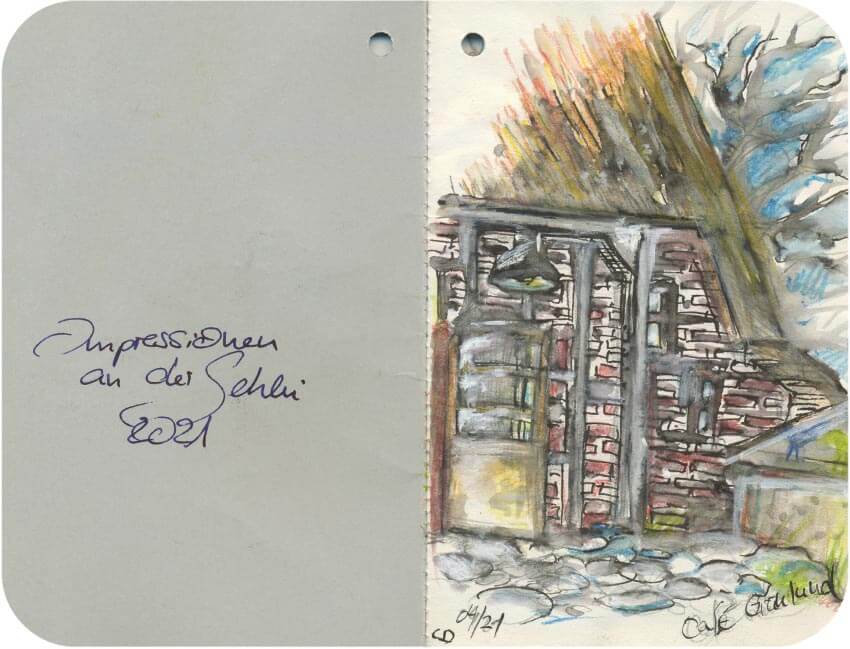 Impressionen
an der Schlei
2021
04/21
Café